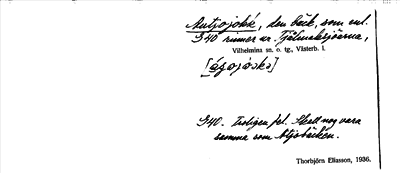 Autjojokk, den bäck, som enl.
S40 rinner ur Tjålmaksjöarna,
Vilhelmina sn. o. tg., Västerb. l.
S40. Troligen fel. Skall nog vara
samma som Atjobäcken.
Thorbjörn Eliasson, 1936.